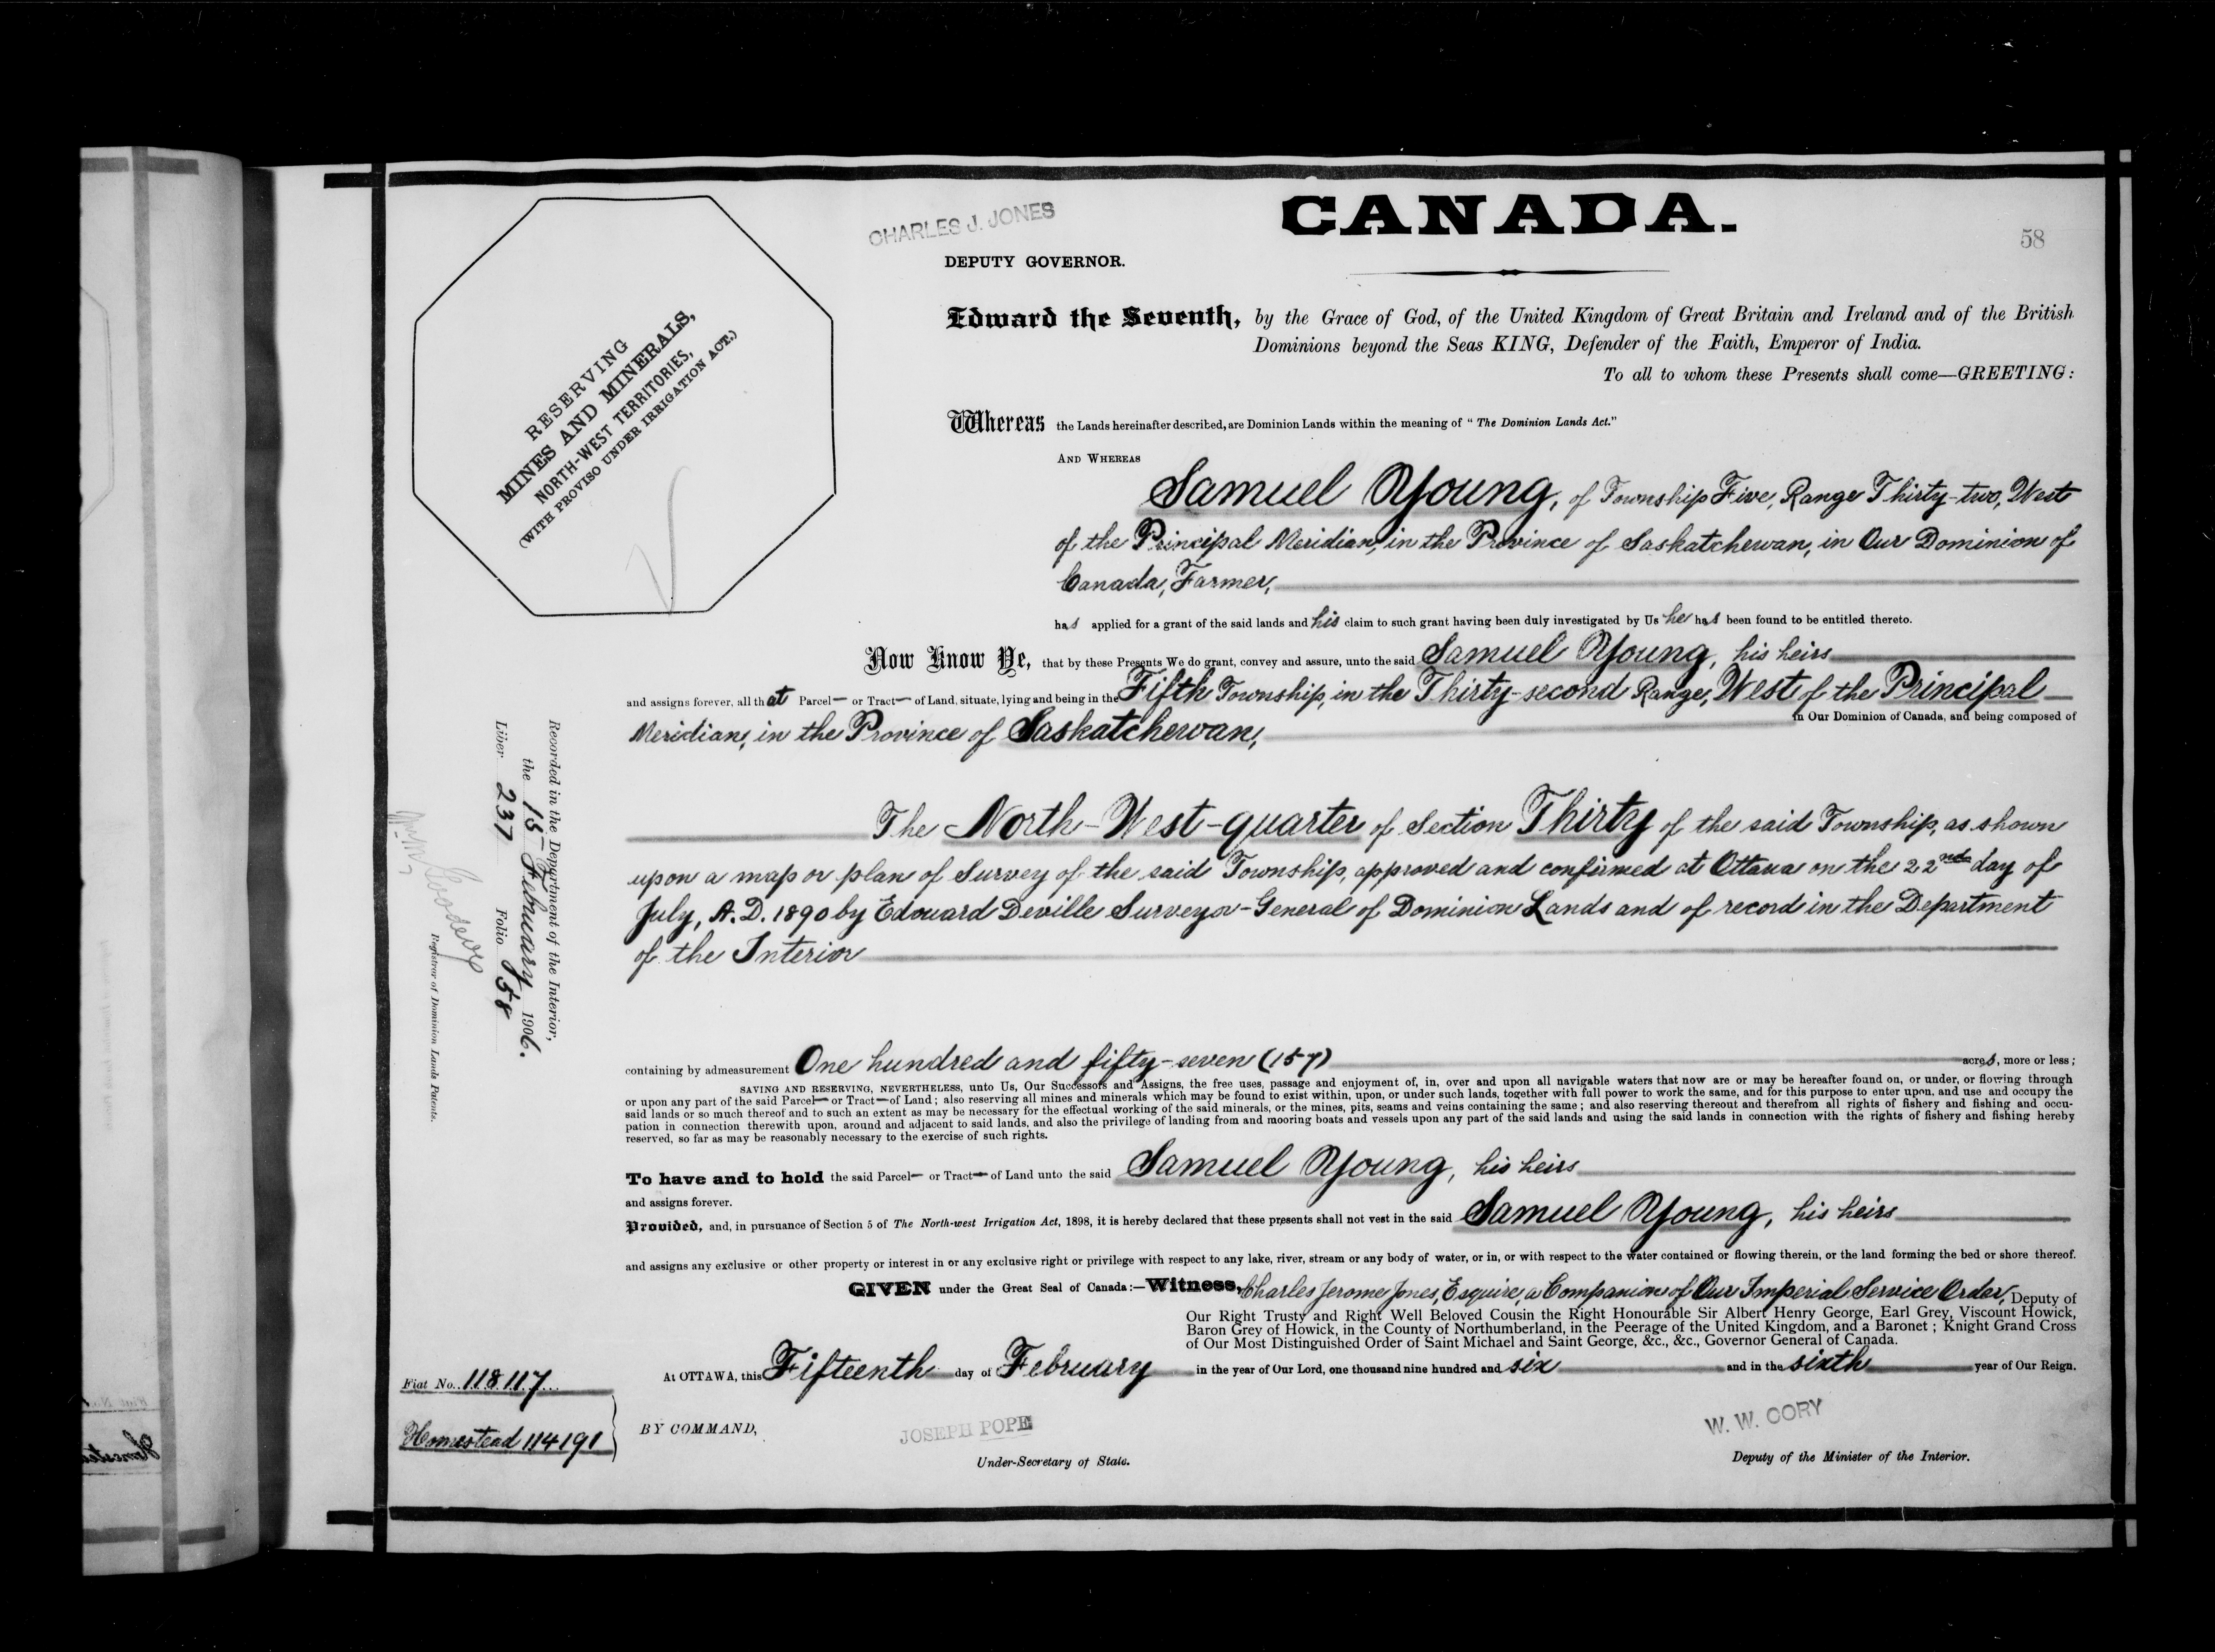 CHARLES J. JONES
DEPUTY GOVERNOR.
CANADA.
58
RESERVING
MINES AND MINERALS,
NORTH-WEST TERRITORIES,
(WITH PROVISO UNDER IRRIGATION ACT.)
Edward the Seventh, by the Grace of God, of the United Kingdom of Great Britain and Ireland and of the British
Dominions beyond the Seas KING, Defender of the Faith, Emperor of India.
To all to whom these Presents shall come—GREETING:
Whereas the Lands hereinafter described, are Dominion Lands within the meaning of "The Dominion Lands Act."
AND WHEREAS
Samuel Young, of Township Five, Range Thirty-two, West
of the Principal Meridian, in the Province of Saskatchewan, in Our Dominion of
Canada, Farmer,
has applied for a grant of the said lands and his claim to such grant having been duly investigated by Us he has been found to be entitled thereto.
Now Know Ye, that by these Presents We do grant, convey and assure, unto the said Samuel Young, his heirs
and assigns forever, all that Parcel— or Tract— of Land, situate, lying and being in the Fifth Township, in the Thirty-second Range, West of the Principal
Meridian, in the Province of Saskatchewan, in Our Dominion of Canada, and being composed of
The North-West-quarter of Section Thirty of the said Township, as shown
upon a map or plan of Survey of the said Township, approved and confirmed at Ottawa on the 22nd day of
July, A.D. 1890 by Edouard Deville Surveyor-General of Dominion Lands and of record in the Department
of the Interior
containing by admeasurement One hundred and fifty-seven (157) acres, more or less;
SAVING AND RESERVING, NEVERTHELESS, unto Us, Our Successors and Assigns, the free uses, passage and enjoyment of, in, over and upon all navigable waters that now are or may be hereafter found on, or under, or flowing through
or upon any part of the said Parcel— or Tract— of Land; also reserving all mines and minerals which may be found to exist within, upon, or under such lands, together with full power to work the same, and for this purpose to enter upon, and use and occupy the
said lands or so much thereof and to such an extent as may be necessary for the effectual working of the said minerals, or the mines, pits, seams and veins containing the same; and also reserving thereout and therefrom all rights of fishery and fishing and occu-
pation in connection therewith upon, around and adjacent to said lands, and also the privilege of landing from and mooring boats and vessels upon any part of the said lands and using the said lands in connection with the rights of fishery and fishing hereby
reserved, so far as may be reasonably necessary to the exercise of such rights.
To have and to hold the said Parcel— or Tract— of Land unto the said Samuel Young, his heirs
and assigns forever.
Provided, and, in pursuance of Section 5 of The North-west Irrigation Act, 1898, it is hereby declared that these presents shall not vest in the said Samuel Young, his heirs
and assigns any exclusive or other property or interest in or any exclusive right or privilege with respect to any lake, river, stream or any body of water, or in, or with respect to the water contained or flowing therein, or the land forming the bed or shore thereof.
GIVEN under the Great Seal of Canada:—Witness, Charles Jerome Jones, Esquire, a Companion of Our Imperial Service Order, Deputy of
Our Right Trusty and Right Well Beloved Cousin the Right Honourable Sir Albert Henry George, Earl Grey, Viscount Howick,
Baron Grey of Howick, in the County of Northumberland, in the Peerage of the United Kingdom, and a Baronet; Knight Grand Cross
of Our Most Distinguished Order of Saint Michael and Saint George, &c., &c., Governor General of Canada.
At OTTAWA, this Fifteenth day of February in the year of Our Lord, one thousand nine hundred and six and in the sixth year of Our Reign.
BY COMMAND,
JOSEPH POPE
Under-Secretary of State.
W. W. CORY
Deputy of the Minister of the Interior.
Fiat No. 118117
Homestead 114191
Recorded in the Department of the Interior,
the 15th February 1906.
Liber 237 Folio 58
Registrar of Dominion Lands Patents.